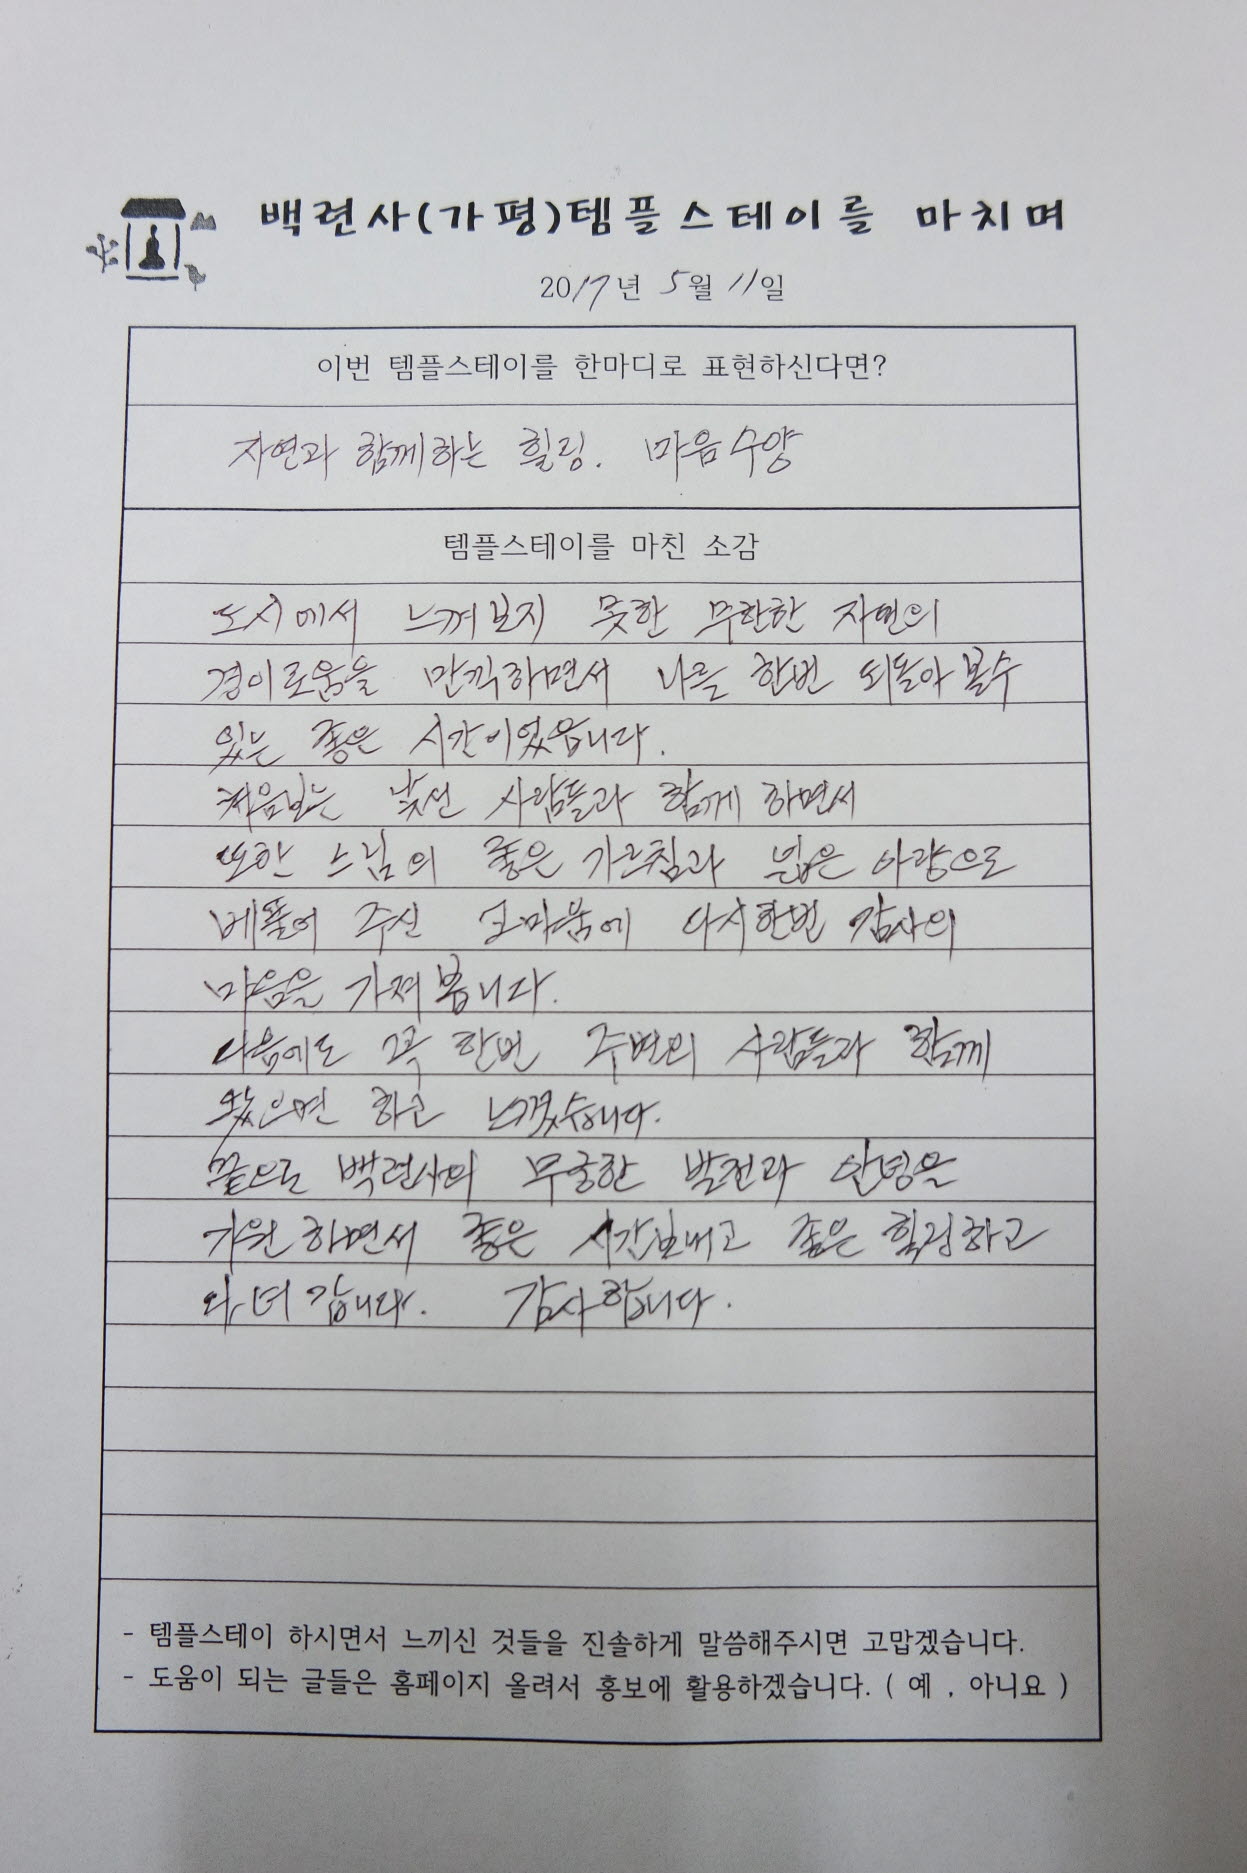 백련사(가평)템플스테이를 마치며
2017년 5월 11일
이번 템플스테이를 한마디로 표현하신다면?
자연과 함께하는 힐링. 마음수양
템플스테이를 마친 소감
도시에서 느껴보지 못한 무한한 자연의
경이로움을 만끽하면서 나를 한번 되돌아 볼수
있는 좋은 시간이었읍니다.
처음보는 낯선 사람들과 함께 하면서
또한 스님의 좋은 가르침과 넓은 아량으로
베풀어 주신 다시한번 감사의
마음을 가져 봅니다.
다음에도 꼭 한번 주변의 사람들과 함께
왔으면 하고 느꼈습니다.
끝으로 백련사의 무궁한 발전과 안녕을
기원하면서 좋은 시간보내고 좋은 힐링하고
갑니다. 감사합니다.
- 템플스테이 하시면서 느끼신 것들을 진솔하게 말씀해주시면 고맙겠습니다.
- 도움이 되는 글들은 홈페이지 올려서 홍보에 활용하겠습니다. ( 예 , 아니요 )